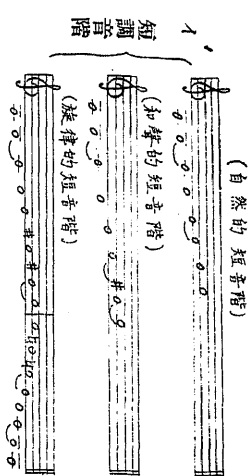 1,
短調音階
(自然的短音階)
(和聲的短音階)
(旋律的短音階)